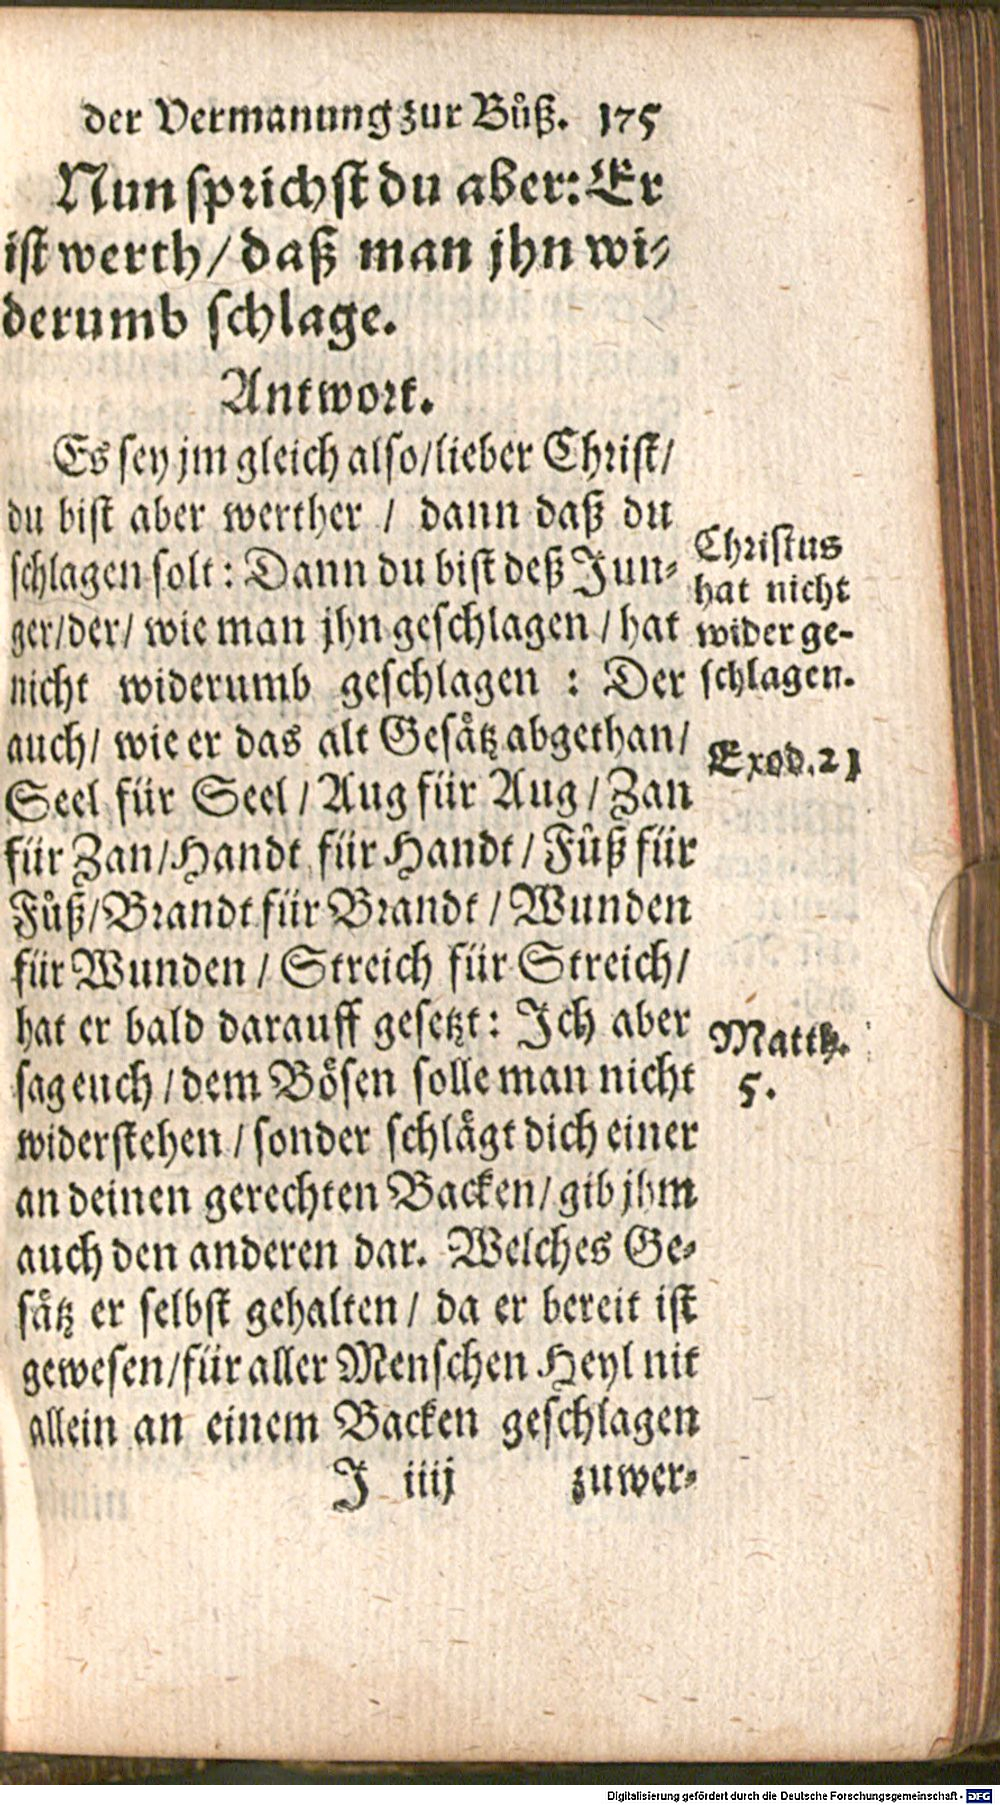 der Vermanung zur Bůß. 175
Nun sprichst du aber: Er
ist werth / daß man jhn wi-
derumb schlage.
Antwort.
Es sey jm gleich also / lieber Christ /
du bist aber werther / dann daß du
schlagen solt : Dann du bist deß Jun-
ger / der / wie man jhn geschlagen / hat
nicht widerumb geschlagen : Der
auch / wie er das alt Gesåtz abgethan /
Seel für Seel / Aug für Aug / Zan
für Zan / Handt für Handt / Fůß für
Fůß / Brandt für Brandt / Wunden
für Wunden / Streich für Streich /
hat er bald darauff gesetzt : Ich aber
sag euch / dem Bösen solle man nicht
widerstehen / sonder schlågt dich einer
an deinen gerechten Backen / gib jhm
auch den anderen dar. Welches Ge-
såtz er selbst gehalten / da er bereit ist
gewesen / für aller Menschen Heyl nit
allein an einem Backen geschlagen
J iiij zuwer-
Christus
hat nicht
wider ge-
schlagen.
Exod. 21
Matth.
5.
Digitalisierung gefördert durch die Deutsche Forschungsgemeinschaft - DFG